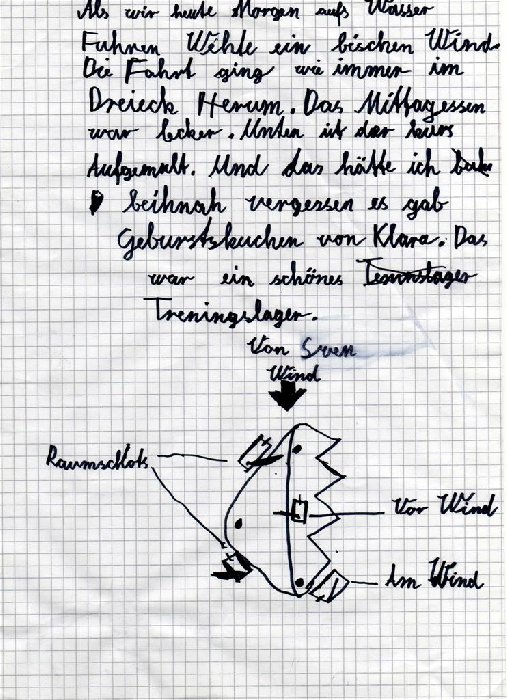 Als wir heute Morgen aufs Wasser
Fuhren Wehte ein bischen Wind.
Die Fahrt ging wie immer im
Dreieck Herum. Das Mittagessen
war lecker. Unten ist der kurs
Aufgemalt. Und das hätte ich
beihnah vergessen es gab
Geburstskuchen von Klara. Das
war ein schönes
Treningslager.
Von Sven
Wind
Raumschots
Vor Wind
Am Wind